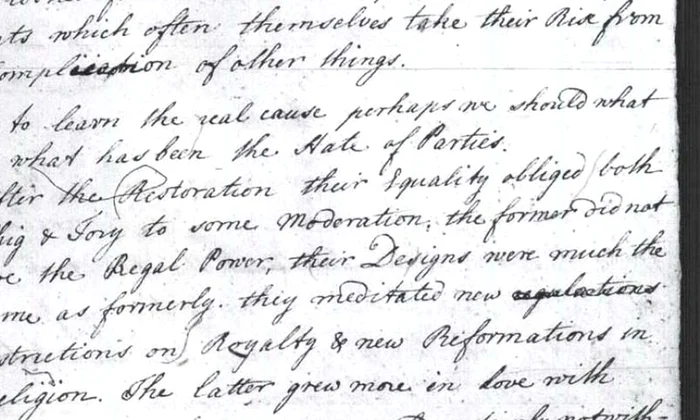 which often themselves take their Rise from
of other things.
to learn the real cause perhaps we should what
what has been the State of Parties.
the Restoration their Equality obliged both
& Tory to some Moderation; the former did not
the Regal Power, their Designs were much the
as formerly. they meditated new regulations
on Royalty & new Reformations in
The latter grew more in love with